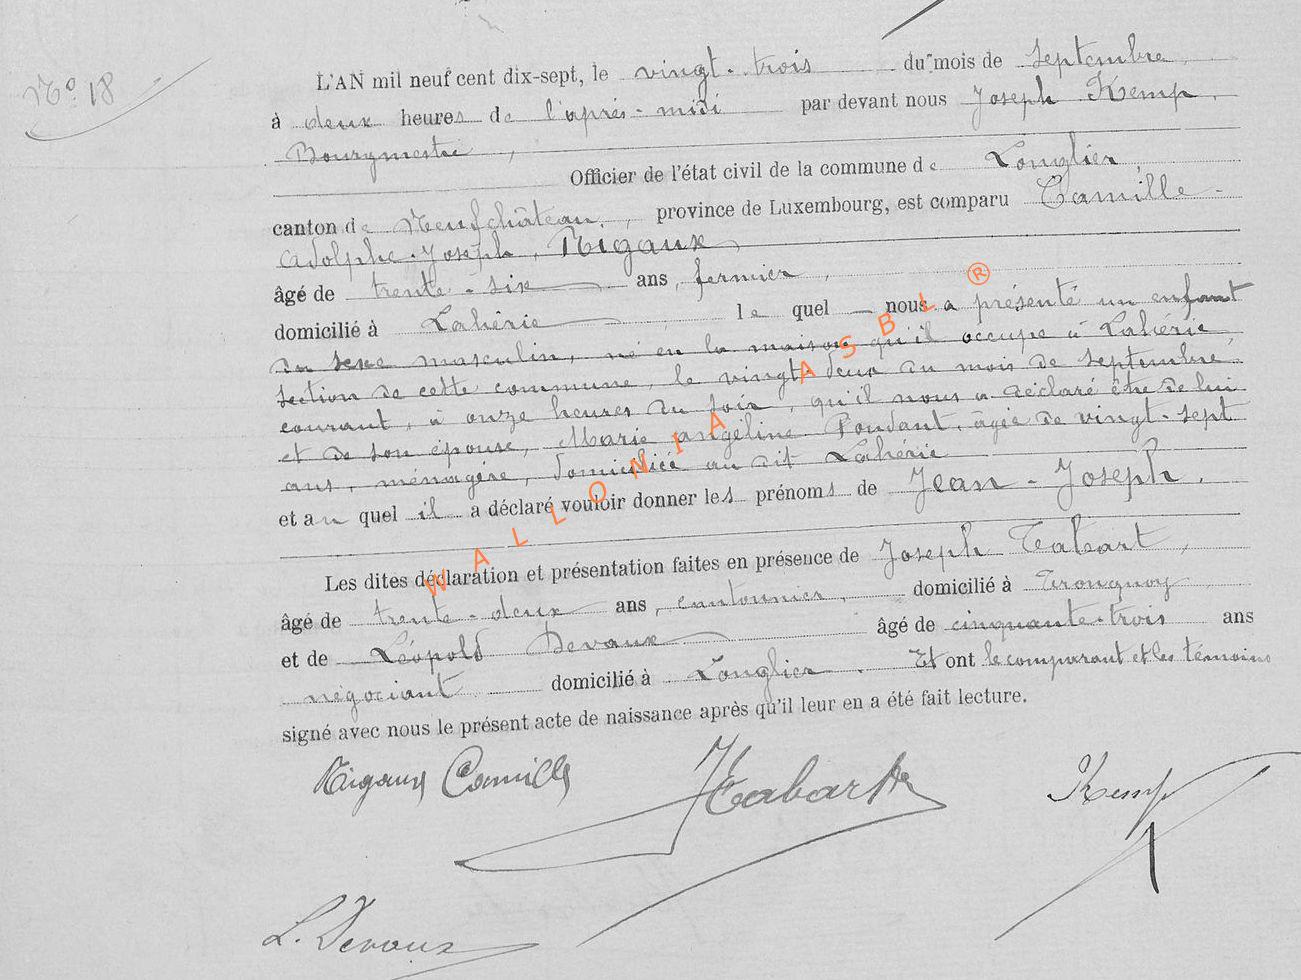 N° 18
L'AN mil neuf cent dix-sept, le vingt-trois du mois de septembre,
à deux heures de l'après-midi par devant nous Joseph Kemp,
Bourgmestre,
Officier de l'état civil de la commune de Longlier,
canton de Neufchâteau, province de Luxembourg, est comparu Camille-
Adolphe-Joseph, Rigaux
âgé de trente-six ans, fermier,
domicilié à Lahérie le quel nous a présenté un enfant
du sexe masculin, né en la maison qu'il occupe à Lahérie,
section de cette commune, le vingt-deux du mois de septembre,
courant, à onze heures du soir, qu'il nous a déclaré être de lui
et de son épouse, Marie Angéline Pondant, âgée de vingt-sept
ans, ménagère, domiciliée au dit Lahérie
et au quel il a déclaré vouloir donner les prénoms de Jean-Joseph.
Les dites déclaration et présentation faites en présence de Joseph Tabart,
âgé de trente-deux ans, cantonnier, domicilié à Tronquoy
et de Léopold Devaux âgé de cinquante-trois ans
négociant domicilié à Longlier. Et ont le comparant et les témoins
signé avec nous le présent acte de naissance après qu'il leur en a été fait lecture.
Rigaux Camille JTabart Kemp
L. Devaux
WALLONIA ASBL ®